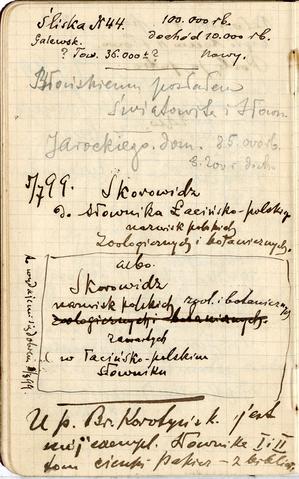 Śliska N 44. 100.000 rb.
dochód 10.000 rb.
Galewsk.
? Tow. 36.000 ± ? Nowy.
Błońskiemu posłałem
Światowita i Słown.
Jarockiego. dom. 85.000 rb
8.200 r doch.
5/7 99. Skorowidz
do Słownika Łacińsko-polskiego
nazwisk polskich
Zoologicznych i botanicznych.
albo.
Skorowidz
nazwisk polskich zool. i botanicznych
zoologicznych i botanicznych.
zawartych
w Łacińsko-polskim
Słowniku
U p. Br. Korotyńsk. jest
mój exempl. Słownika I i II
tom cienki papier